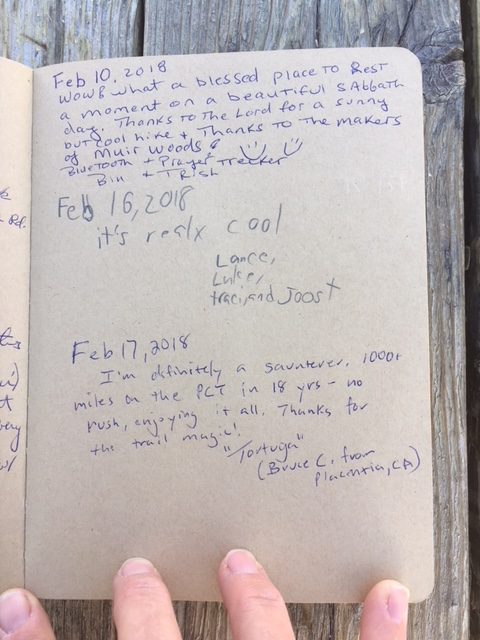 Feb 10, 2018
WOW! What a blessed place to Rest
a moment on a beautiful SAbbath
day. Thanks to the Lord for a sunny
but cool hike + Thanks to the makers
of Muir Woods!
Bluetooth + Prayer Trecker
Bin + Trish
Feb 16, 2018
it's realx cool
Lance,
Luke,
traci, and Joost
Feb 17, 2018
I'm definitely a saunterer. 1000+
miles on the PCT in 18 yrs - no
rush, enjoying it all. Thanks for
the trail magic!
"Tortuga"
(Bruce C. from
Placentia, CA)
Rd.